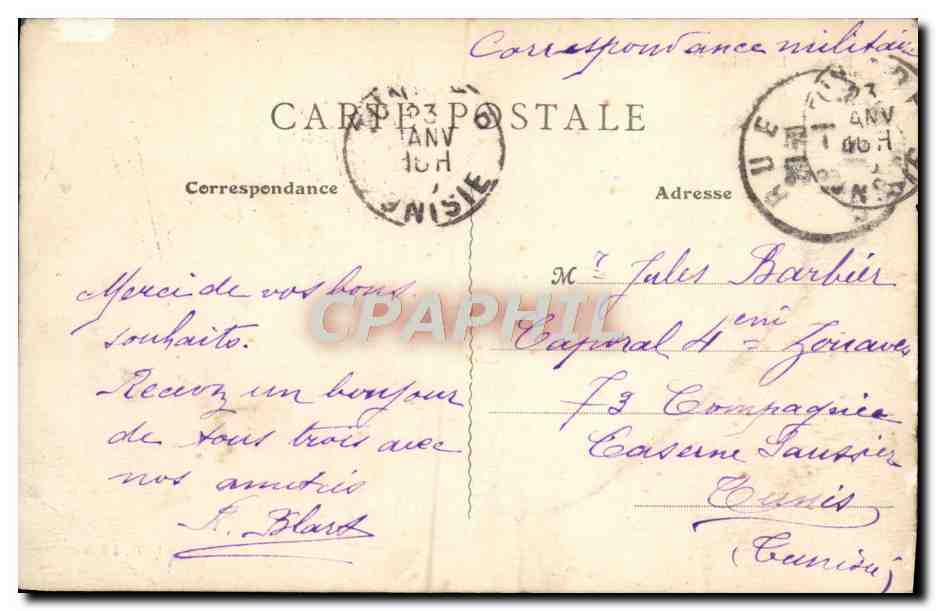 Correspondance militaire
CARTE POSTALE
23
JANV
16H
TUNISIE
23
JANV
16H
RUE
Correspondance
Adresse
Merci de vos bons
souhaits.
Recevez un bonjour
de tous trois avec
nos amitiés
A. Blart
Mr Jules Barbier
Caporal 4eme Zouaves
73 Compagnie
Caserne Saussier
Tunis
(Tunisie)
CPAPHIL